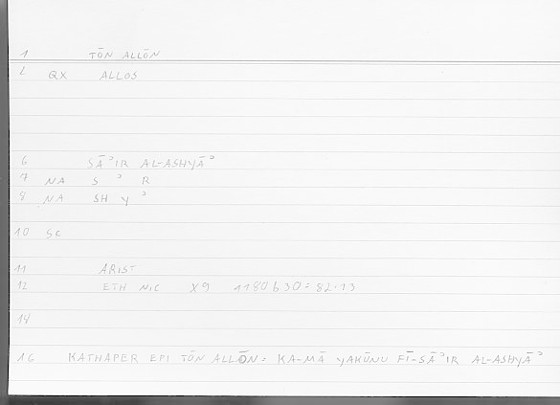 1 TŌN ALLŌN
2 QX ALLOS
6 SĀʾIR AL-ASHYĀʾ
7 NA S ʾ R
8 NA SH Y ʾ
10 SC
11 ARIST
12 ETH NIC X9 1180b30=82.13
14
16 KATHAPER EPI TŌN ALLŌN: KA-MĀ YAKŪNU FĪ-SĀʾIR AL-ASHYĀʾ